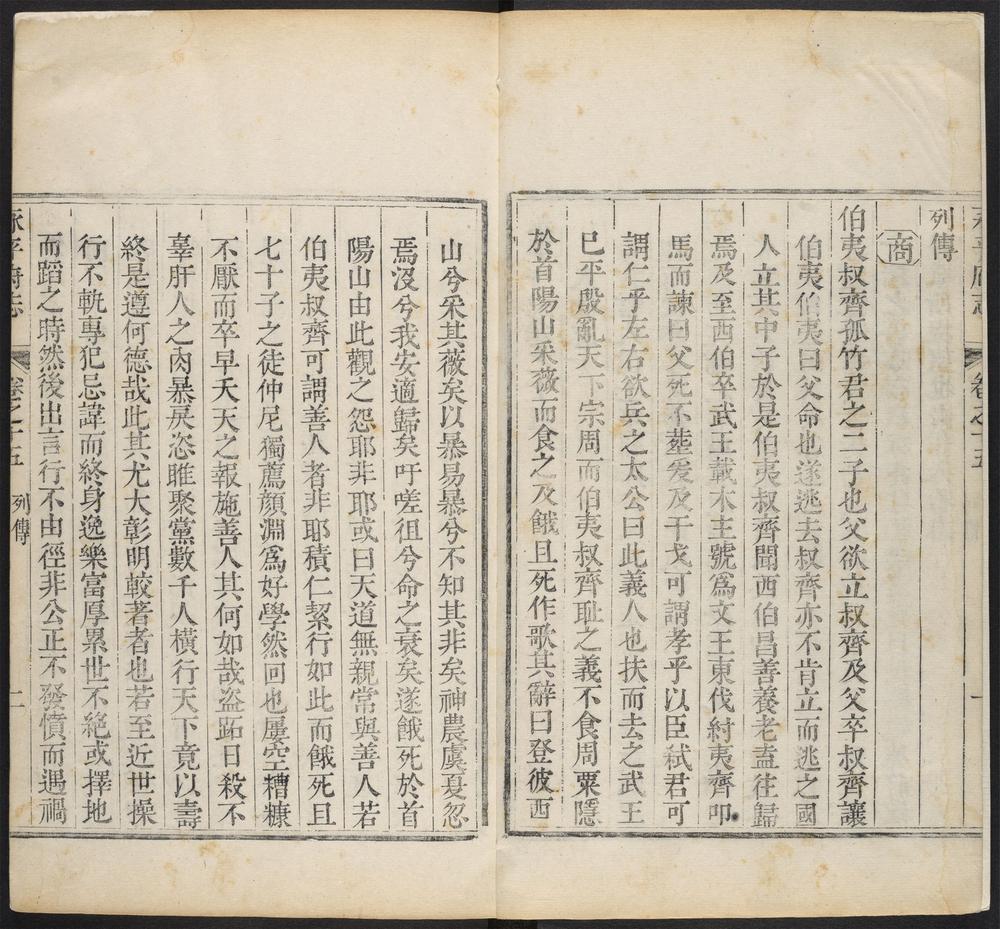 永平府志
卷之十五
一
列傳
商
伯夷叔齊孤竹君之二子也父欲立叔齊及父卒叔齊讓
伯夷伯夷曰父命也遂逃去叔齊亦不肯立而逃之國
人立其中子於是伯夷叔齊聞西伯昌善養老盍往歸
焉及至西伯卒武王載木主號爲文王東伐紂夷齊叩
馬而諫曰父死不塟爰及干戈可謂孝乎以臣弒君可
謂仁乎左右欲兵之太公曰此義人也扶而去之武王
已平殷亂天下宗周而伯夷叔齊耻之義不食周粟隱
於首陽山采薇而食之及餓且死作歌其辭曰登彼西
山兮采其薇矣以暴易暴兮不知其非矣神農虞夏忽
焉沒兮我安適歸矣吁嗟徂兮命之衰矣遂餓死於首
陽山由此觀之怨耶非耶或曰天道無親常與善人若
伯夷叔齊可謂善人者非耶積仁絜行如此而餓死且
七十子之徒仲尼獨薦顏淵爲好學然回也屢空糟糠
不厭而卒早夭天之報施善人其何如哉盜跖日殺不
辜肝人之肉暴戾恣睢聚黨數千人橫行天下竟以壽
終是遵何德哉此其尤大彰明較著者也若至近世操
行不軌專犯忌諱而終身逸樂富厚累世不絕或擇地
而蹈之時然後出言行不由徑非公正不發憤而遇禍
永平府志
卷之十五
列傳
二